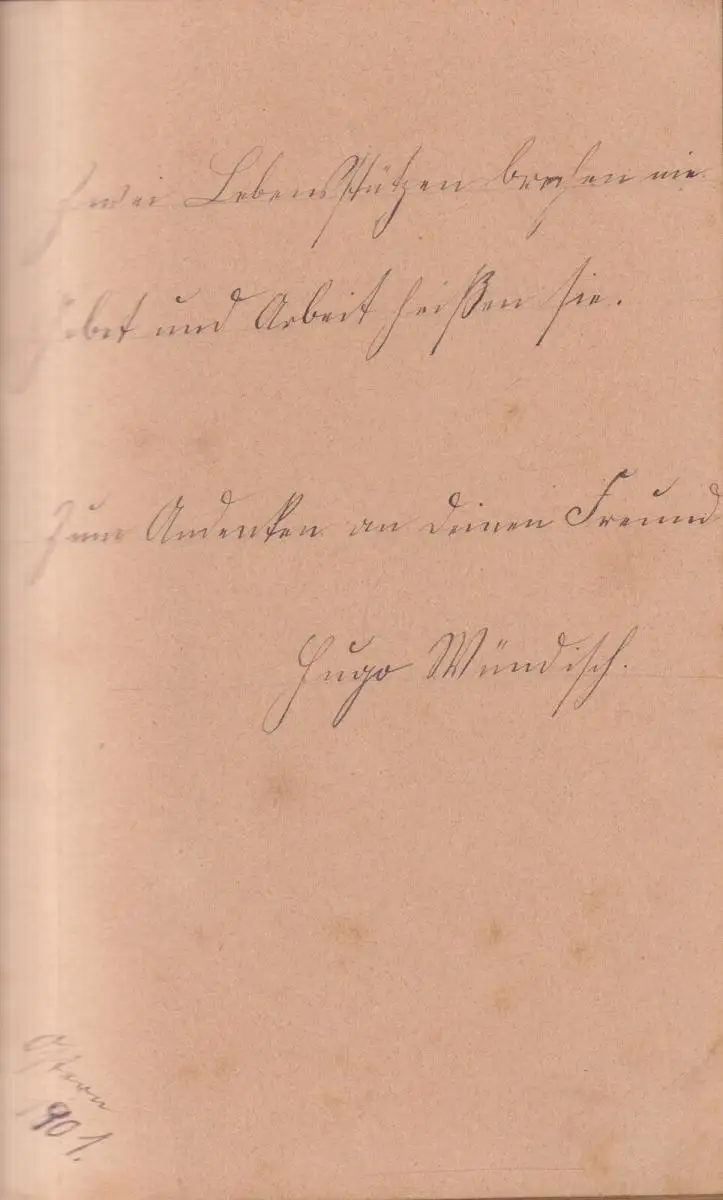 Zwei Lebensstützen brechen nie
Gebet und Arbeit heißen sie.
Zum Andenken an deinen Freund
Hugo Wündisch.
Ostern
1901.